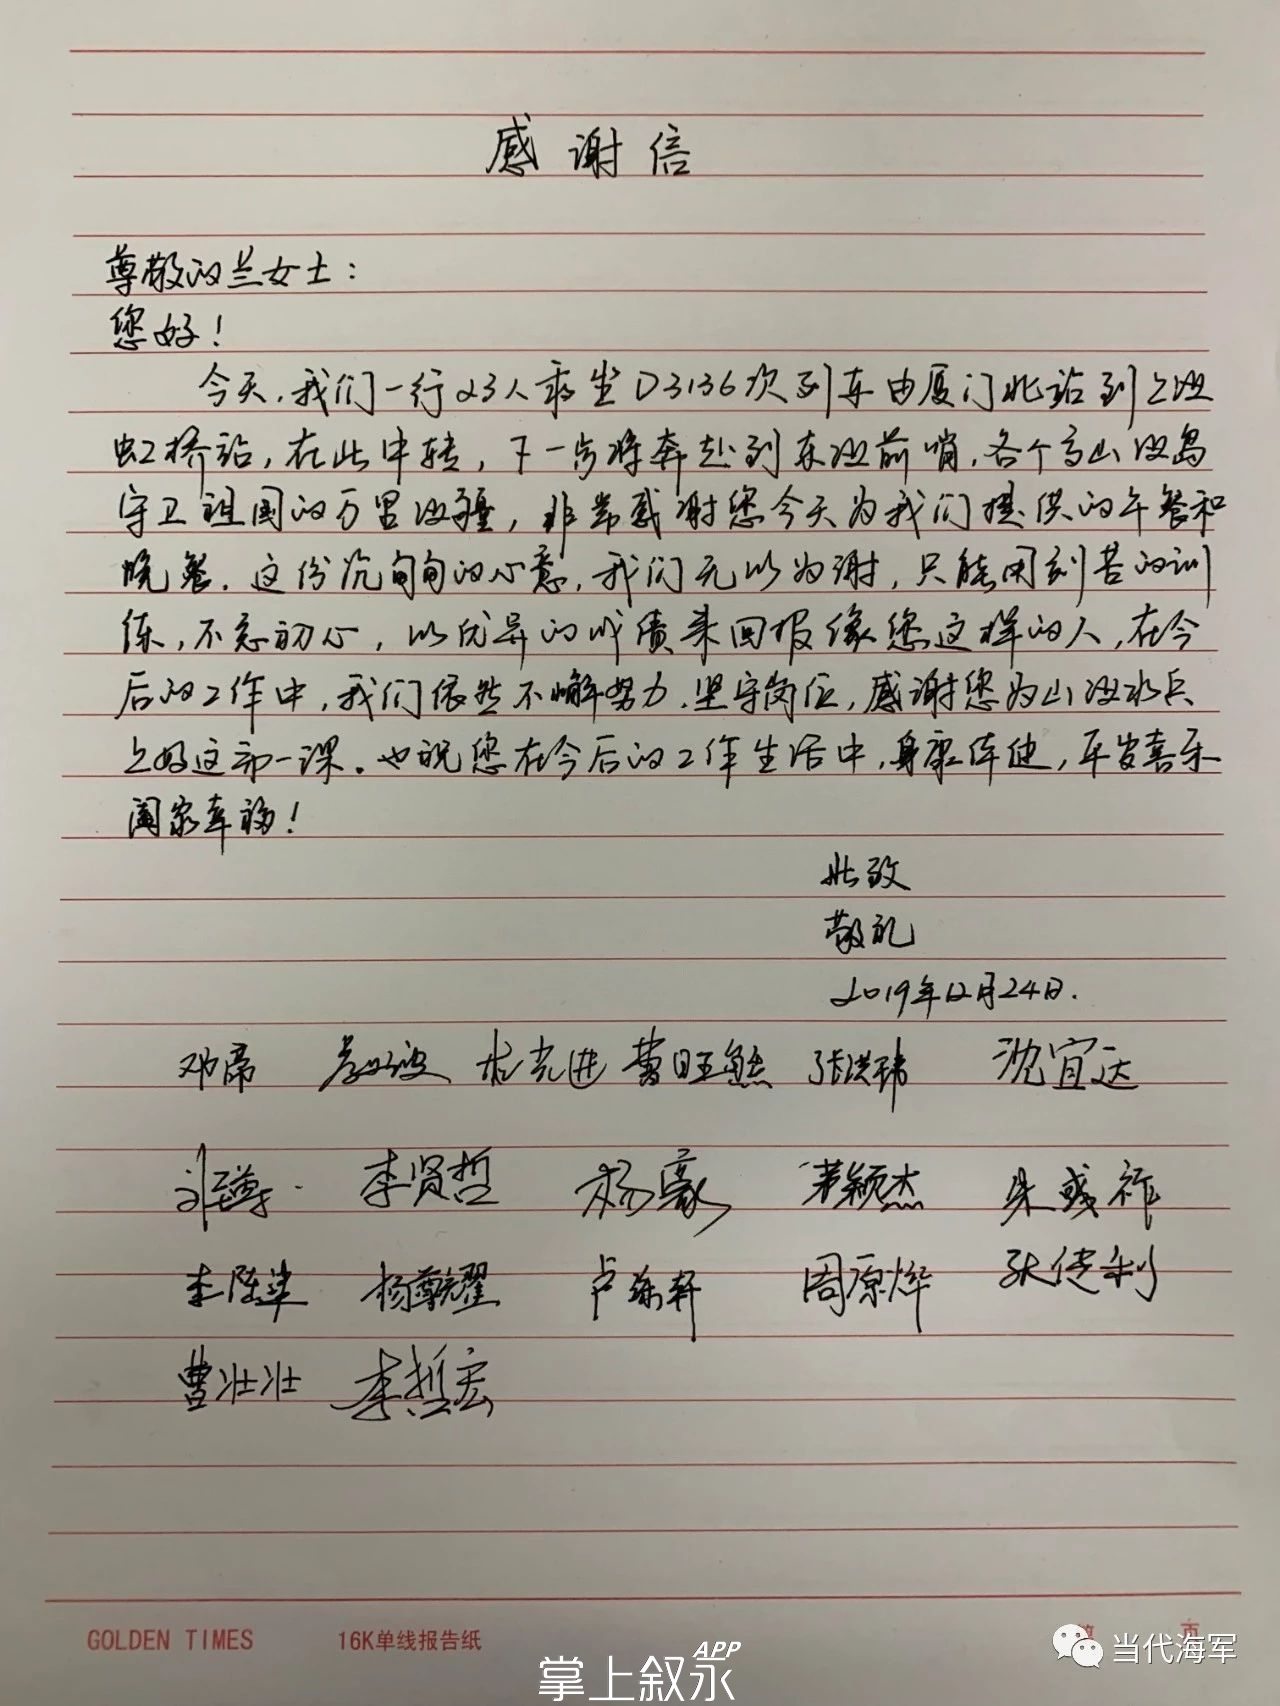 感谢信
尊敬的兰女士：
您好！
今天，我们一行23人乘坐D3136次列车由厦门北站到上海
虹桥站，在此中转，下一步将奔赴到东海前哨，各个高山海岛
守卫祖国的万里海疆，非常感谢您今天为我们提供的午餐和
晚餐．这份沉甸甸的心意，我们无以为谢，只能用刻苦的训
练，不忘初心，以优异的成绩来回报像您这样的人，在今
后的工作中，我们依然不懈努力．坚守岗位，感谢您为山海水兵
上好这第一课。也祝您在今后的工作生活中，身康体健，平安喜乐
阖家幸福！
此致
敬礼
2019年12月24日．
邓席 杜克进 张洪玮 沈宜达
李贤哲 杨豪 茅颖杰 朱彧祚
周原烨 张传利
曹壮壮 李哲宏
GOLDEN TIMES 16K单线报告纸 第 页
当代海军
掌上叙永APP